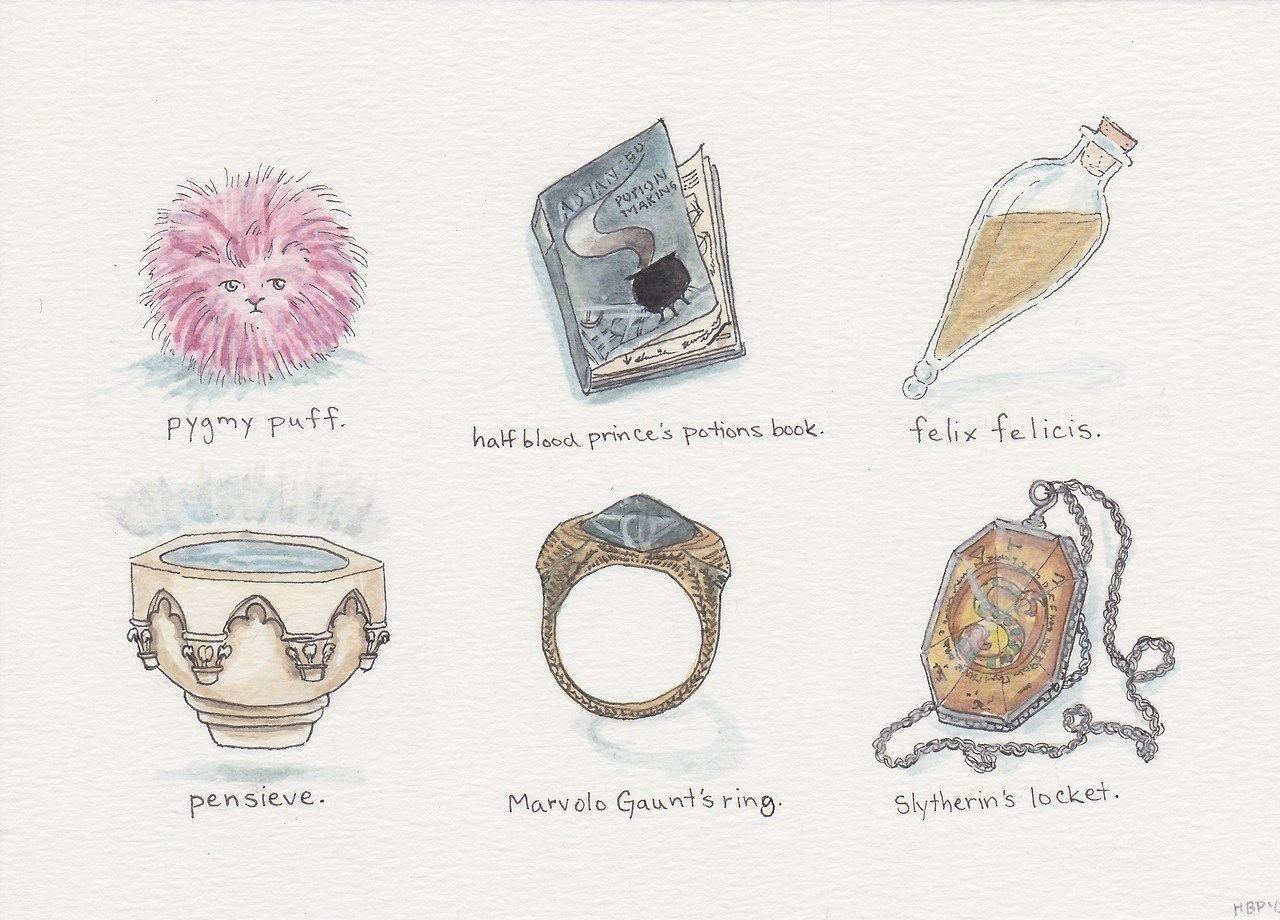 ADVAN-ED
POTION
MAKING
pygmy puff.
half blood prince's potions book.
felix felicis.
pensieve.
Marvolo Gaunt's ring.
Slytherin's locket.